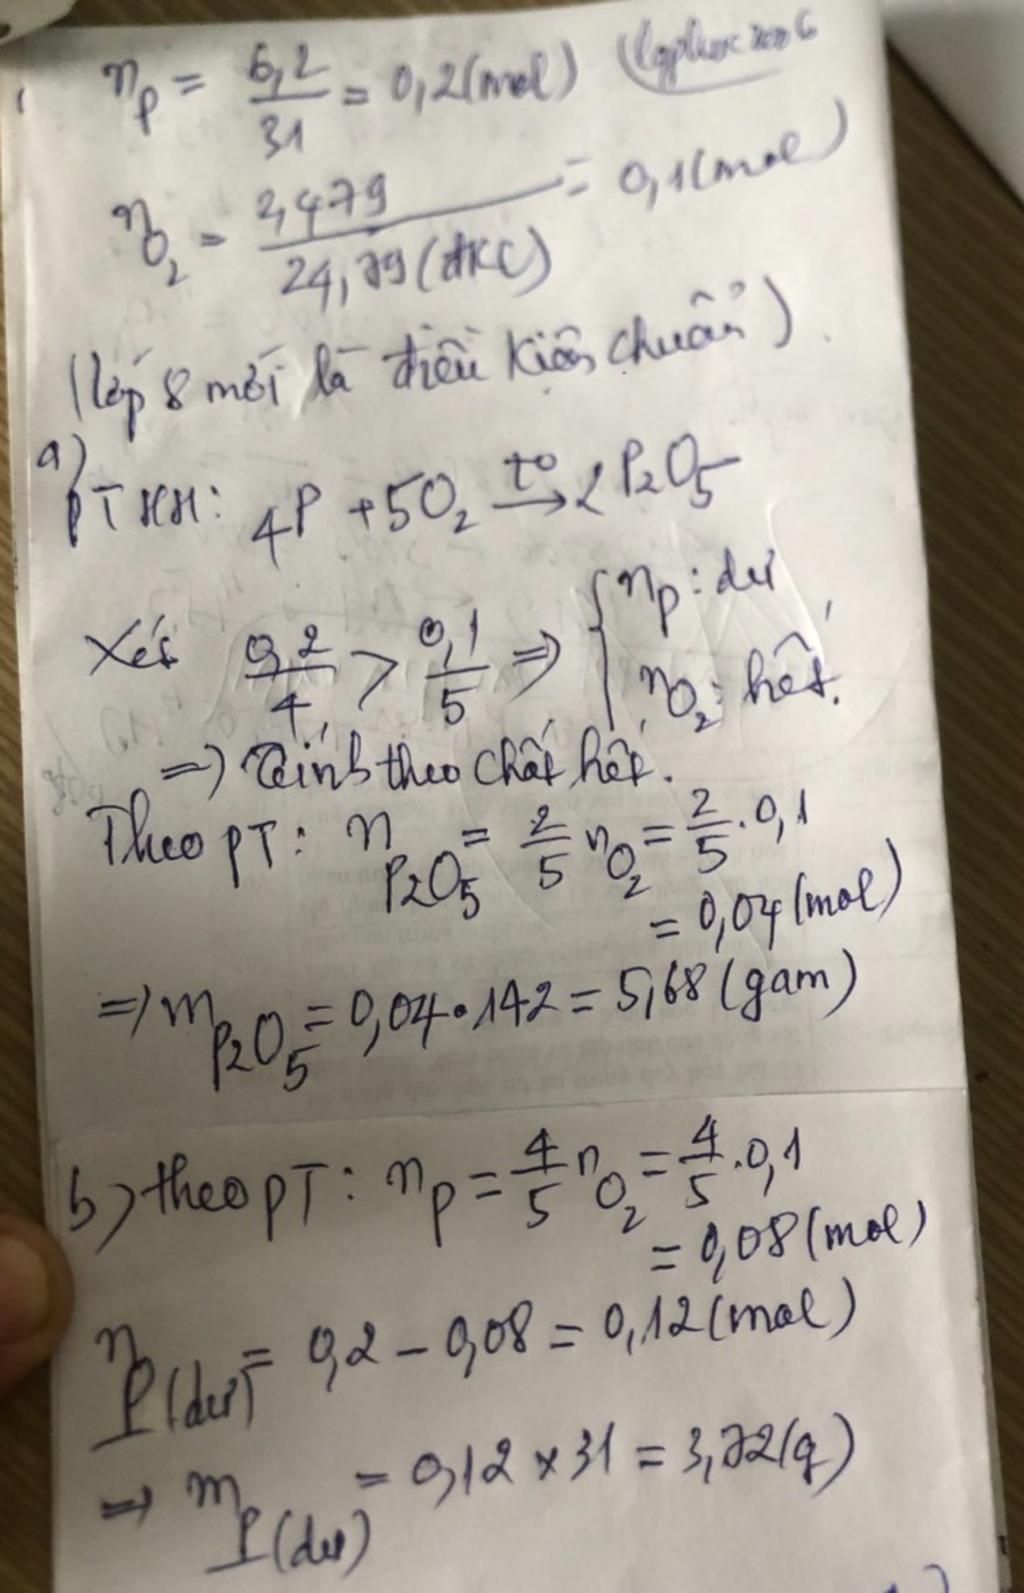 n_P = 6,2/31 = 0,2(mol)
n_O₂ = 2,479/24,79(đKC) = 0,1(mol)
(lớp 8 mới là điều kiện chuẩn)
a)
PTHH: 4P + 5O₂ →(t°) 2P₂O₅
Xét 0,2/4 > 0,1/5 ⇒ { n_P: dư
n_O₂: hết.
=) Tính theo chất hết.
Theo PT: n_P₂O₅ = 2/5 n_O₂ = 2/5 . 0,1
= 0,04 (mol)
=) m_P₂O₅ = 0,04 . 142 = 5,68 (gam)
b) theo PT: n_P = 4/5 n_O₂ = 4/5 . 0,1
= 0,08 (mol)
n_P(dư) = 0,2 - 0,08 = 0,12 (mol)
=) m_P(dư) = 0,12 x 31 = 3,72 (g)